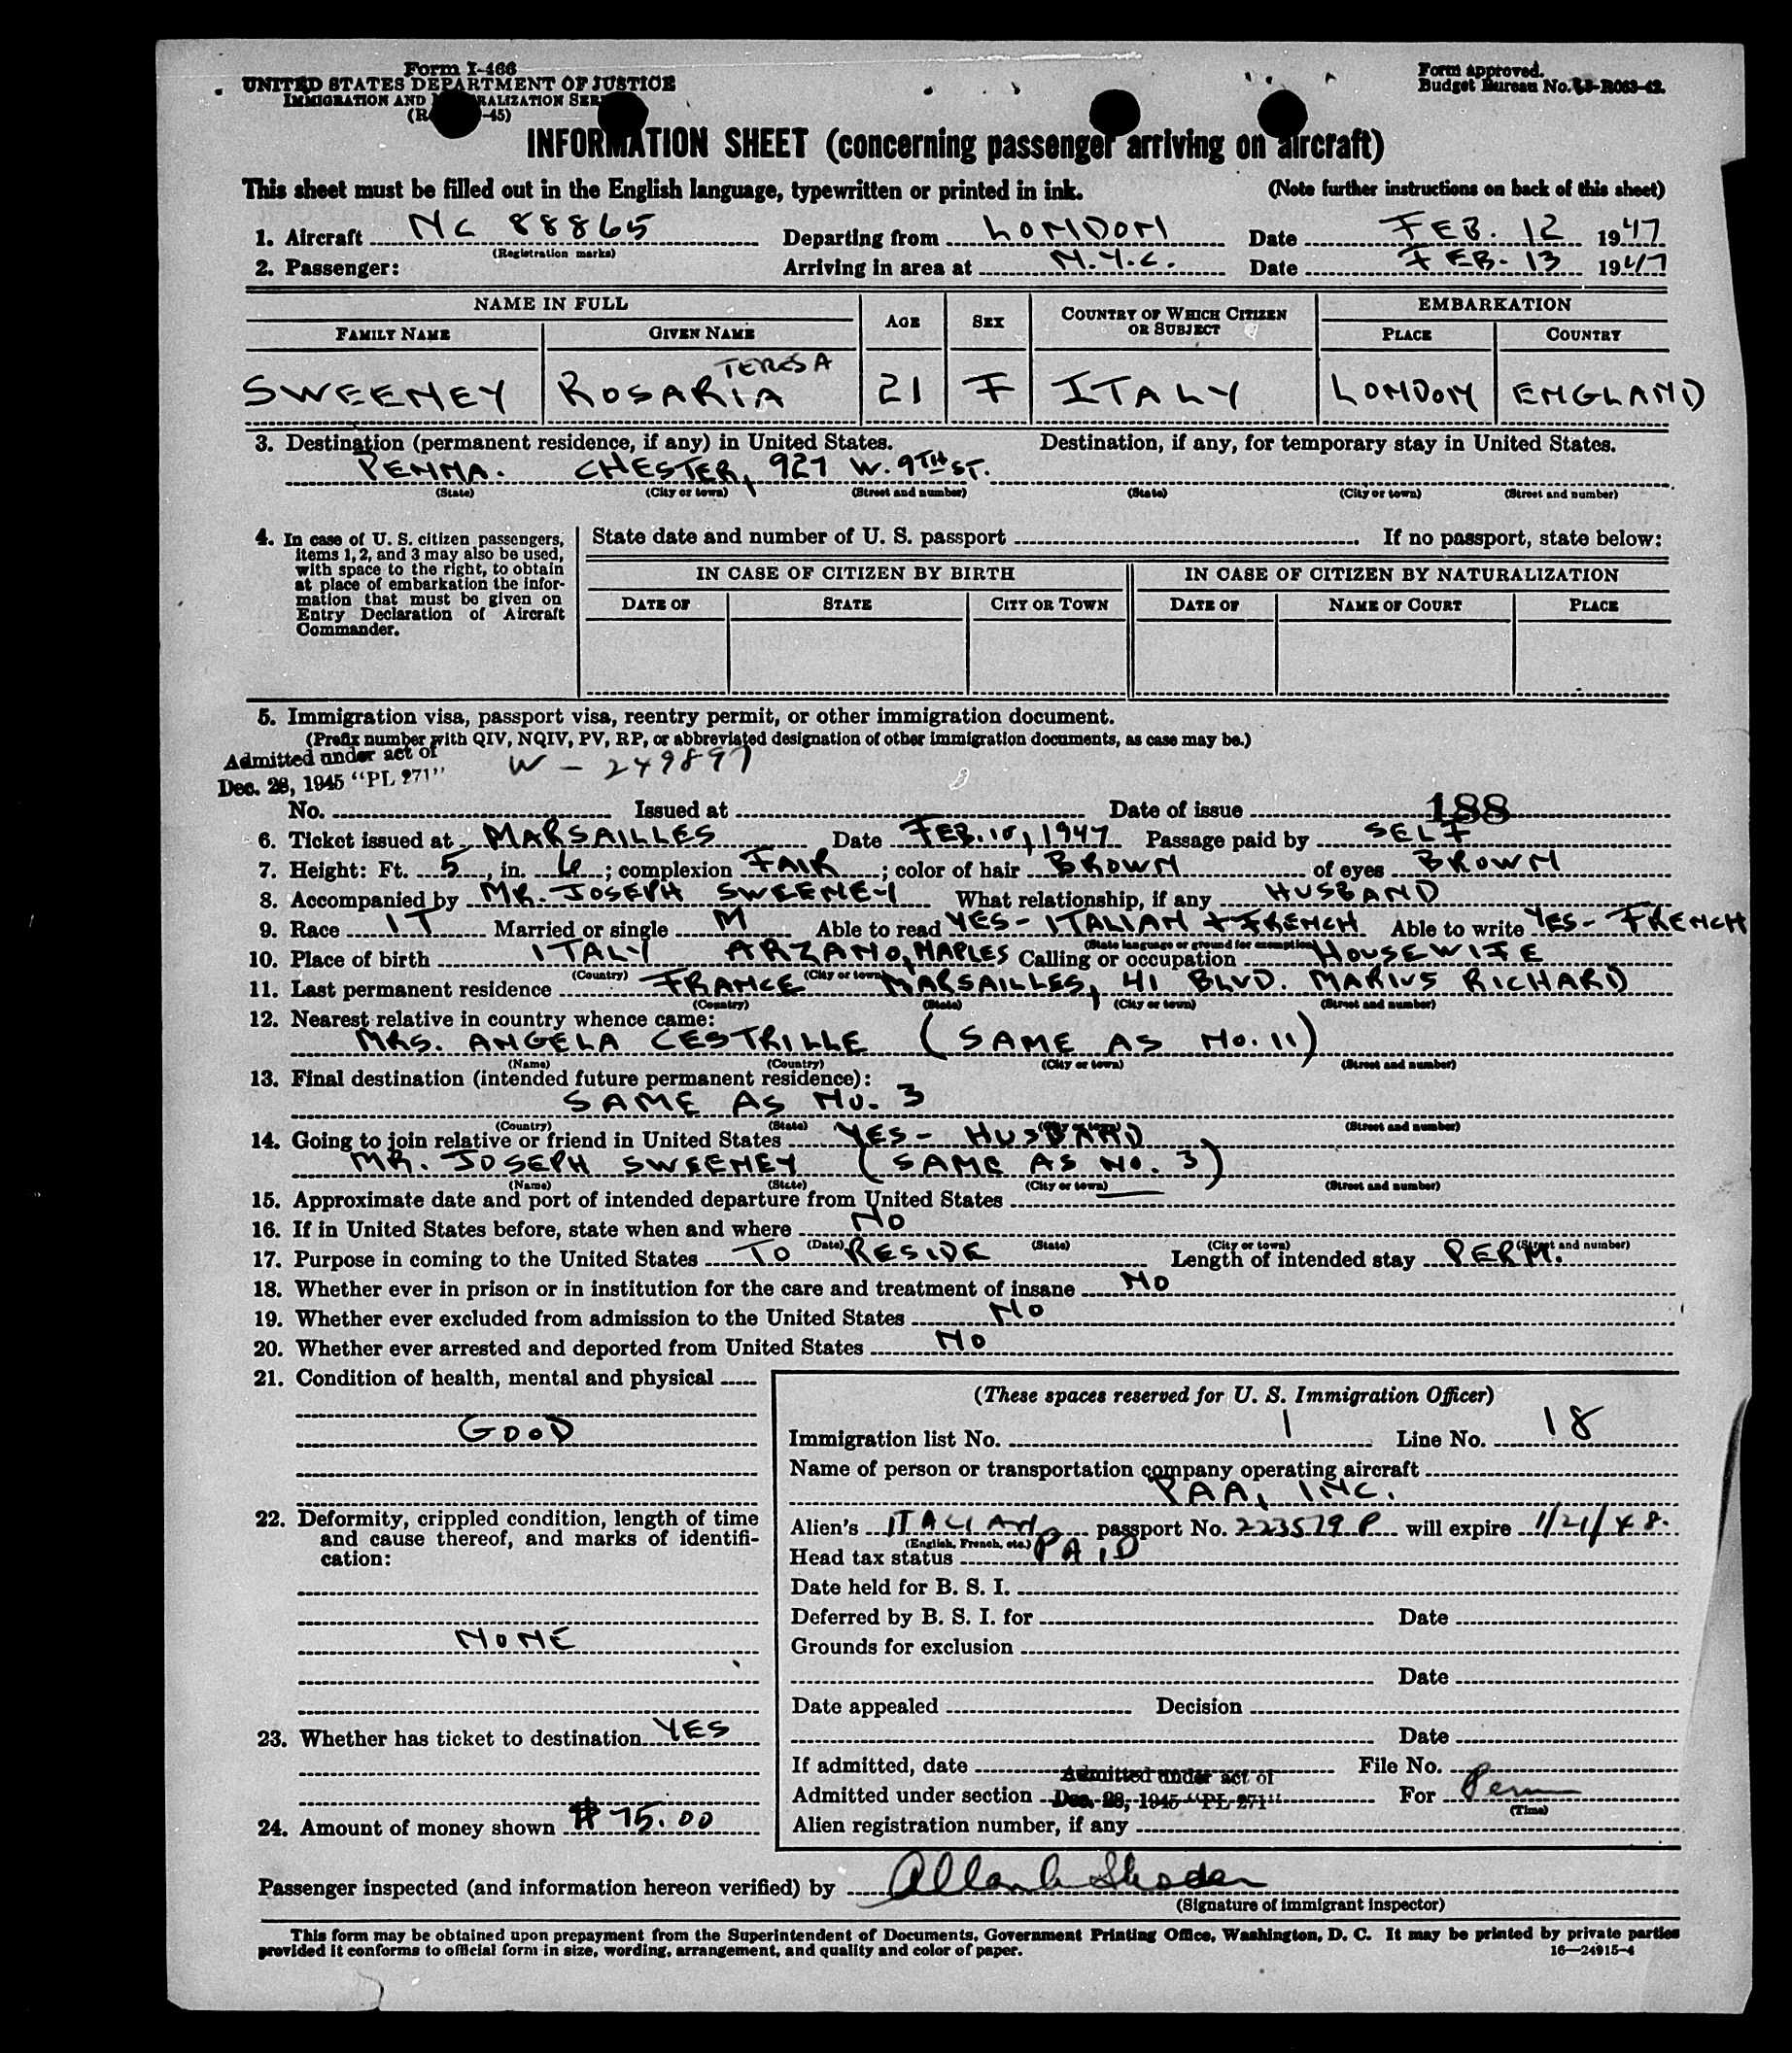 Form I-466
UNITED STATES DEPARTMENT OF JUSTICE
Form approved.
Budget Bureau No.
IMMIGRATION AND
-45)
INFORMATION SHEET (concerning passenger arriving on aircraft)
This sheet must be filled out in the English language, typewritten or printed in ink. (Note further instructions on back of this sheet)
1. Aircraft NC 88865 Departing from LONDON Date FEB. 12 1947
(Registration marks)
2. Passenger: Arriving in area at N.Y.C. Date FEB. 13 1947
NAME IN FULL AGE SEX COUNTRY OF WHICH CITIZEN OR SUBJECT EMBARKATION
FAMILY NAME GIVEN NAME PLACE COUNTRY
TERESA
SWEENEY ROSARIA 21 F ITALY LONDON ENGLAND
3. Destination (permanent residence, if any) in United States. Destination, if any, for temporary stay in United States.
PENNA. CHESTER, 927 W. 9TH ST.
(State) (City or town) (Street and number) (State) (City or town) (Street and number)
4. In case of U. S. citizen passengers,
items 1, 2, and 3 may also be used,
with space to the right, to obtain
at place of embarkation the infor-
mation that must be given on
Entry Declaration of Aircraft
Commander.
State date and number of U. S. passport If no passport, state below:
IN CASE OF CITIZEN BY BIRTH IN CASE OF CITIZEN BY NATURALIZATION
DATE OF STATE CITY OR TOWN DATE OF NAME OF COURT PLACE
5. Immigration visa, passport visa, reentry permit, or other immigration document.
(Prefix number with QIV, NQIV, PV, RP, or abbreviated designation of other immigration documents, as case may be.)
Admitted under act of
Dec. 28, 1945 "PL 271"
W - 249897
No. Issued at Date of issue 188
6. Ticket issued at MARSAILLES Date FEB. 10, 1947 Passage paid by SELF
7. Height: Ft. 5, in. 6; complexion FAIR; color of hair BROWN of eyes BROWN
8. Accompanied by MR. JOSEPH SWEENEY What relationship, if any HUSBAND
9. Race IT Married or single M Able to read YES - ITALIAN + FRENCH Able to write YES - FRENCH
(State language or ground for exemption)
10. Place of birth ITALY ARZANO, NAPLES Calling or occupation HOUSEWIFE
(Country) (City or town)
11. Last permanent residence FRANCE MARSAILLES, 41 BLVD. MARIUS RICHARD
(Country) (State) (City or town) (Street and number)
12. Nearest relative in country whence came:
MRS. ANGELA CESTRILLE (SAME AS No. 11)
(Name) (Country) (City or town) (Street and number)
13. Final destination (intended future permanent residence):
SAME AS No. 3
(Country) (State) (City or town) (Street and number)
14. Going to join relative or friend in United States YES - HUSBAND
MR. JOSEPH SWEENEY (SAME AS No. 3)
(Name) (State) (City or town) (Street and number)
15. Approximate date and port of intended departure from United States
16. If in United States before, state when and where NO
(Date) (State) (City or town) (Street and number)
17. Purpose in coming to the United States TO RESIDE Length of intended stay PERM.
18. Whether ever in prison or in institution for the care and treatment of insane NO
19. Whether ever excluded from admission to the United States NO
20. Whether ever arrested and deported from United States NO
21. Condition of health, mental and physical
GOOD
22. Deformity, crippled condition, length of time
and cause thereof, and marks of identifi-
cation:
NONE
23. Whether has ticket to destination YES
24. Amount of money shown $75.00
(These spaces reserved for U. S. Immigration Officer)
Immigration list No. 1 Line No. 18
Name of person or transportation company operating aircraft
PAA, INC.
Alien's ITALIAN passport No. 223579 P will expire 1/21/48.
(English, French, etc.)
Head tax status PAID
Date held for B. S. I.
Deferred by B. S. I. for Date
Grounds for exclusion
Date
Date appealed Decision
Date
If admitted, date File No.
Admitted under act of
Admitted under section Dec. 28, 1945 "PL 271" For Perm
(Time)
Alien registration number, if any
Passenger inspected (and information hereon verified) by
(Signature of immigrant inspector)
This form may be obtained upon prepayment from the Superintendent of Documents, Government Printing Office, Washington, D. C. It may be printed by private parties
provided it conforms to official form in size, wording, arrangement, and quality and color of paper. 16—24915-4